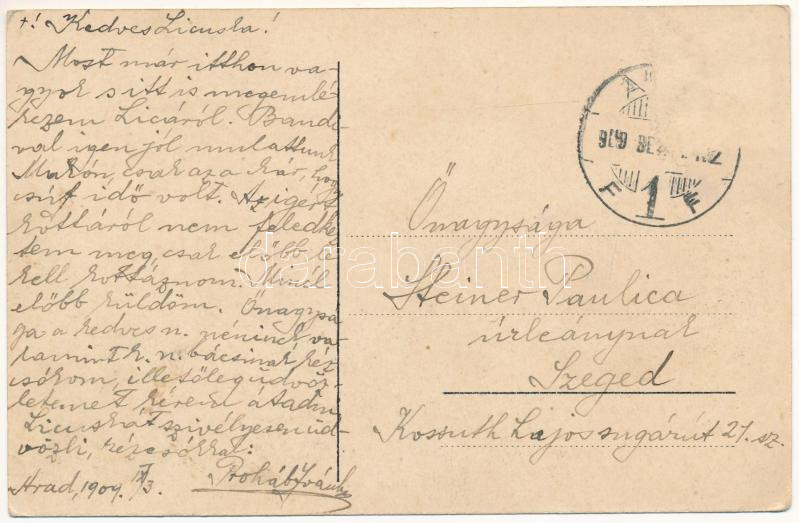 +! Kedves Licuska!
Most már itthon va-
gyok s itt is megemlé-
kezem Liciáról. Bandi-
val igen jól mulattunk
Makón, csak az a kár, hogy
csúf idő volt. Az igért
kottáról nem feledkez-
tem meg, csak előbb le
kell kottáznom. Minél
előbb küldöm. Őnagysá-
ga a kedves n. néninek va-
lamint k. n. bácsinak kéz-
csókom, illetőleg üdvöz-
letemet kérem átadni
Licuskát szivélyesen üd-
vözli, kézcsókkal:
Arad, 1909. IX/3.
Ő
Őnagysága
Steiner Paulica
úrleánynak
Szeged
Kossuth Lajos sugárút 21. sz.
A
909
1
F F
darabanth